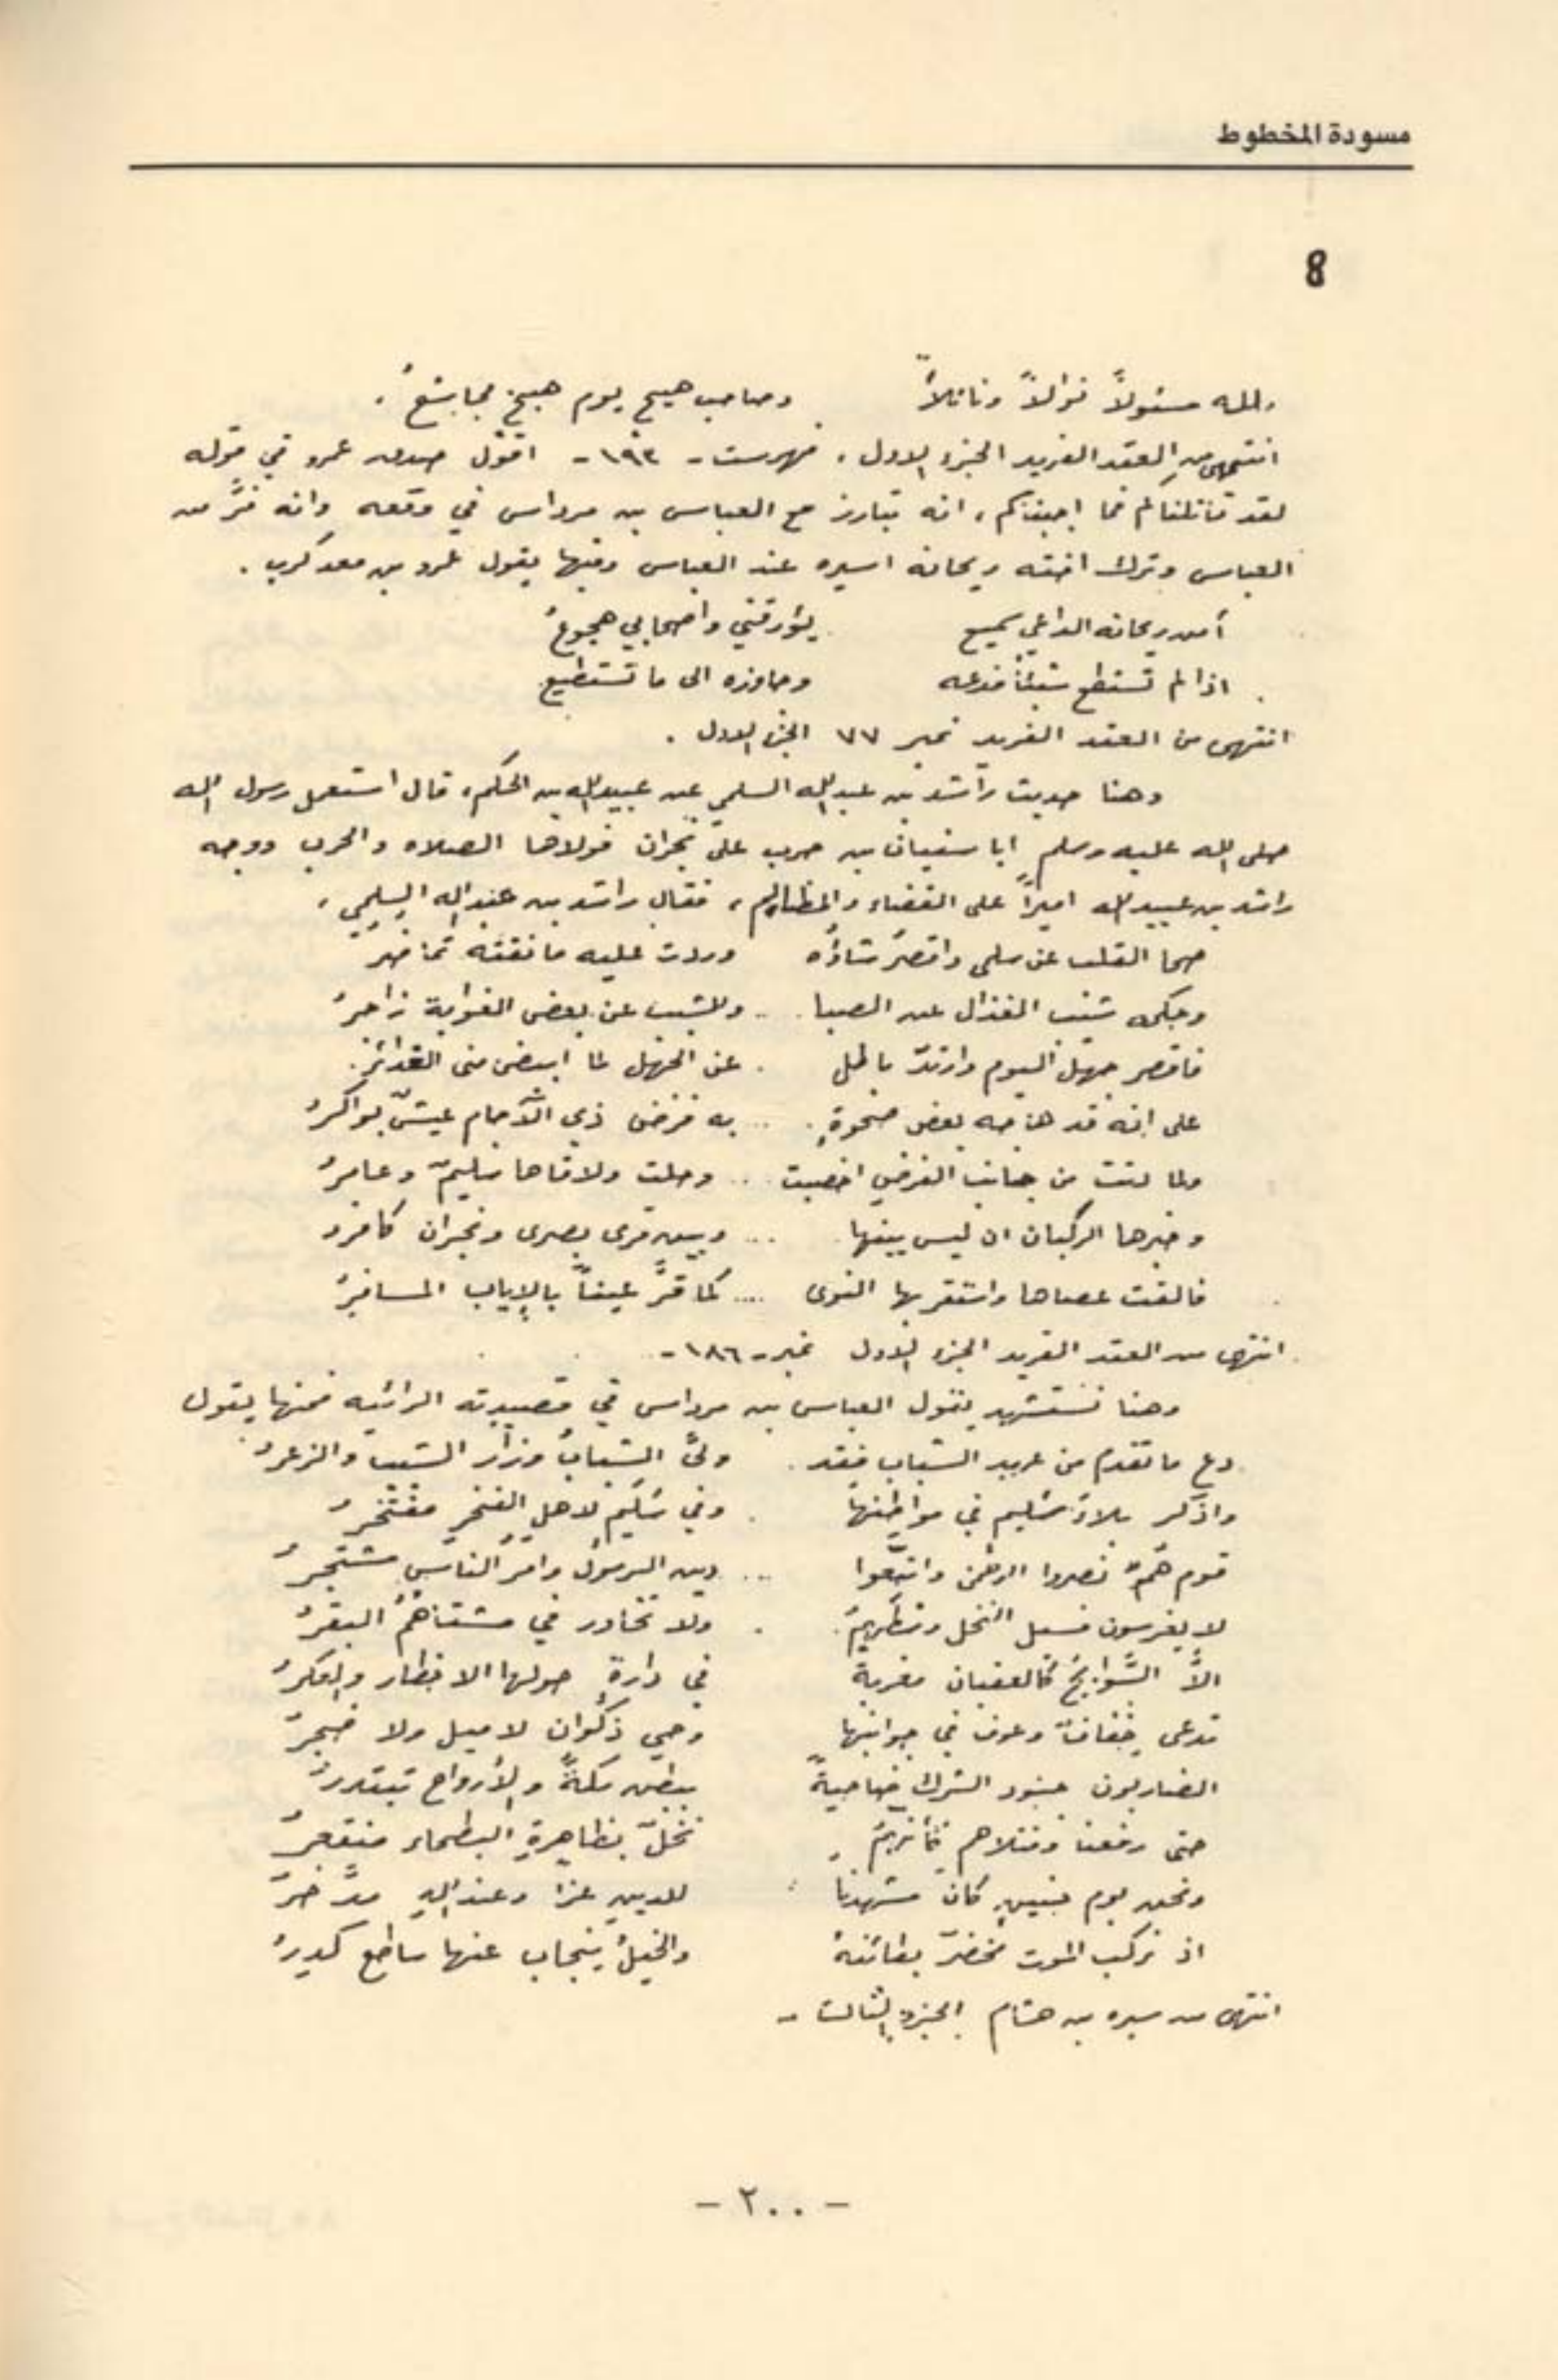 مسودة المخطوط
8
ولله مسئولاً نوالاً ونائلاً وصاحب هيج يوم هيج مجاشعُ .
انتهى من العقد الفريد الجزء الاول . فهرست - ١٩٢ - اقول صدق عمرو في قوله
لقد قاتلناكم فما اجبناكم ، انه تبارز مع العباس بن مرداس في وقعه وانه فرَّ من
العباس وترك اخته ريحانه اسيره عند العباس وفيها يقول عمرو بن معد كرب .
أمن ريحانه الداعي سميع يؤرقني واصحابي هجوعُ
اذا لم تستطع شيئاً فدعه وجاوزه الى ما تستطيع
انتهى من العقد الفريد نمبر ٧٧ الجزء الاول .
وهنا حديث راشد بن عبدالله السلمي عن عبيدالله بن الحكم ، قال استعمل رسول الله
صلى الله عليه وسلم ابا سفيان بن حرب على نجران فولاها الصلاه والحرب ووجه
راشد بن عبيدالله اميراً على القضاء والمظالم ، فقال راشد بن عبدالله السلمي ،
صحا القلب عن سلمى واقصر شاؤه وردت عليه ما نفته تماضرُ
وحكمه شيب القذال عن الصبا .. وللشيب عن بعض الغواية زاجرُ
فاقصر جهل اليوم وارتدّ باطل . عن الجهل لما ابيض منى الغدائر .
على انه قد هاجه بعض صحوةٍ .. به فرض ذي الآجام عيسٌ بواكرُ
ولما دنت من جانب الفرض اخصبت .. وحلت ولاقاها سليمٌ وعامرُ
وخبرها الركبان ان ليس بينها ... وبين قرى بصرى ونجران كافرُ
فالقت عصاها واستقر بها النوى .... كما قرَّ عيناً بالإياب المسافرُ
انتهى من العقد الفريد الجزء الاول نمبر - ١٨٦ -
وهنا نستشهد بقول العباس بن مرداس في قصيدته الرائيه فمنها يقول
دع ما تقدم من عهد الشباب فقد . ولىَّ الشبابُ وزار الشيب والزعرُ
واذكر بلاءَ سُليم في مواطنها . وفي سُليمٍ لاهلِ الفخرِ مفتخرُ
قوم همُ نصروا الرحمن واتبعوا ... دين الرسول وامرُ الناسِ مشتجرُ
لا يغرسون فسيل النخل وسطهمُ . ولا تخاور في مشتاهمُ البقرُ
الاَّ السَّوابح كالعقبان مقربة في دارةٍ حولها الاخطار والعكرُ
تدعى خفافٌ وعوف في جوانبها وحي ذكوان لا ميل ولا ضجرُ
الضاربون جنود الشرك ضاحيةً ببطن مكةَ والأرواح تبتدرُ
حتى رفعنا وقتلاهم كأنهمُ نخلٌ بظاهرةِ البطحاء منقعرُ
ونحن يوم حنينٍ كان مشهدنا للدينِ عزا وعند اللهِ مدَّخرُ
اذ نركب الموت مخضرّ بطائنهُ والخيلُ ينجاب عنها ساطع كدرُ
انتهى من سيره بن هشام الجزء الثالث -
- ٢٠٠ -